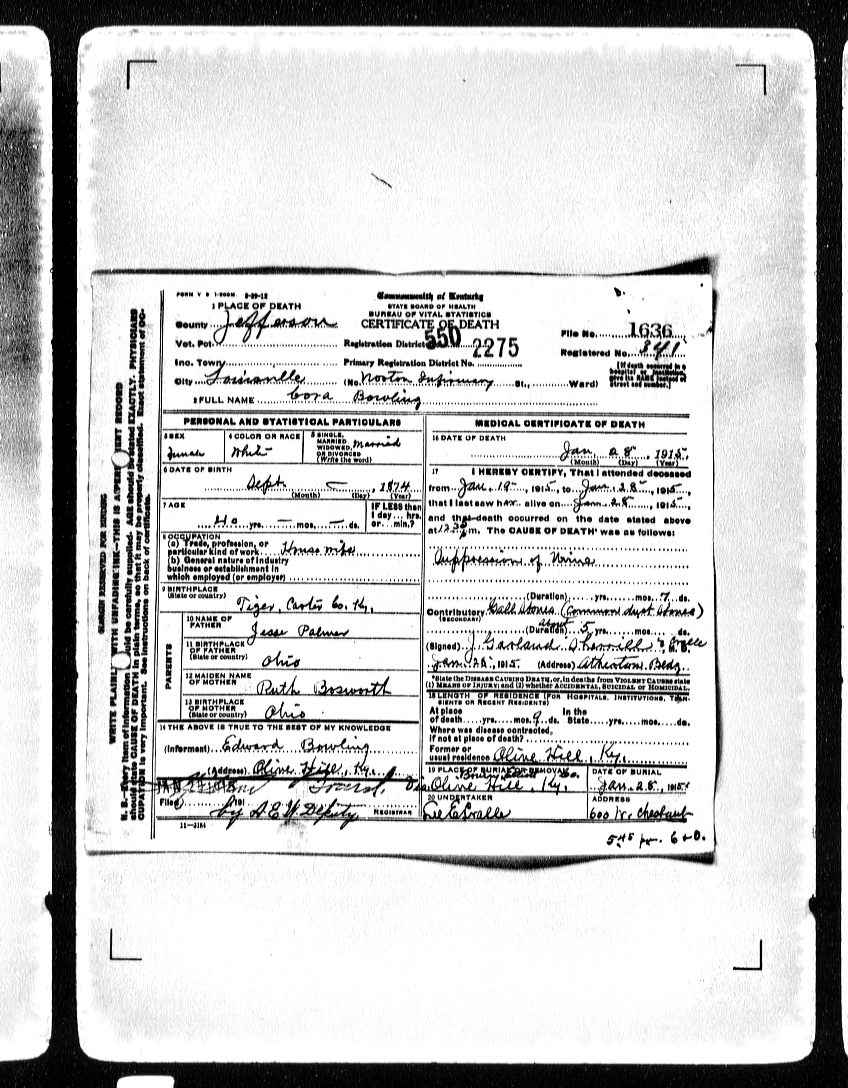 FORM V S 1-200M 5-29-12
Commonwealth of Kentucky
STATE BOARD OF HEALTH
BUREAU OF VITAL STATISTICS
CERTIFICATE OF DEATH
1 PLACE OF DEATH
County Jefferson
Vot. Pct.
Inc. Town
City Louisville
Registration District 550
Primary Registration District No. 2275
(No. Norton Infirmary St., Ward)
File No. 1636
Registered No. 841
[If death occurred in a hospital or institution, give its NAME instead of street and number.]
2 FULL NAME Cora Bowling
PERSONAL AND STATISTICAL PARTICULARS
3 SEX
Female
4 COLOR OR RACE
White
5 SINGLE, MARRIED, WIDOWED, OR DIVORCED
(Write the word)
Married
6 DATE OF BIRTH
Sept. — 1874
(Month) (Day) (Year)
7 AGE
40 yrs. — mos. — ds.
IF LESS than 1 day... hrs. or... min.?
8 OCCUPATION
(a) Trade, profession, or particular kind of work House wife
(b) General nature of industry business or establishment in which employed (or employer)
9 BIRTHPLACE
(State or country)
Tiger, Carter Co. Ky.
PARENTS
10 NAME OF FATHER
Jesse Palmer
11 BIRTHPLACE OF FATHER
(State or country)
Ohio
12 MAIDEN NAME OF MOTHER
Ruth Bosworth
13 BIRTHPLACE OF MOTHER
(State or country)
Ohio
14 THE ABOVE IS TRUE TO THE BEST OF MY KNOWLEDGE
(Informant) Edward Bowling
(Address) Olive Hill, Ky.
15
Filed 191
by A E W Deputy REGISTRAR
11-3184
MEDICAL CERTIFICATE OF DEATH
16 DATE OF DEATH
Jan. 28, 1915
(Month) (Day) (Year)
17 I HEREBY CERTIFY, That I attended deceased
from Jan. 19, 1915, to Jan. 28, 1915,
that I last saw her alive on Jan. 28, 1915,
and that death occurred on the date stated above
at 12 30 m. The CAUSE OF DEATH* was as follows:
Suppression of Urine
(Duration) yrs. mos. 7 ds.
Contributory Gall Stones (common duct stones)
(SECONDARY)
(Duration) about 5 yrs. mos. ds.
(Signed) J. Garland Sherrill
Jan. 28, 1915 (Address) Atherton Bldg.
*State the DISEASE CAUSING DEATH, or, in deaths from VIOLENT CAUSES state (1) MEANS OF INJURY; and (2) whether ACCIDENTAL, SUICIDAL or HOMICIDAL.
18 LENGTH OF RESIDENCE (FOR HOSPITALS, INSTITUTIONS, TRANSIENTS OR RECENT RESIDENTS)
At place of death yrs. mos. 9 ds. In the State yrs. mos. ds.
Where was disease contracted, if not at place of death?
Former or usual residence Olive Hill, Ky.
19 PLACE OF BURIAL OR REMOVAL
Olive Hill, Ky.
DATE OF BURIAL
Jan. 28, 1915
20 UNDERTAKER
Lee E Cralle
ADDRESS
600 W. Chestnut
MARGIN RESERVED FOR BINDING
WRITE PLAINLY WITH UNFADING INK—THIS IS A PERMANENT RECORD
N. B.—Every item of information should be carefully supplied. AGE should be stated EXACTLY. PHYSICIANS
should state CAUSE OF DEATH in plain terms, so that it may be properly classified. Exact statement of OC-
CUPATION is very important. See instructions on back of certificate.